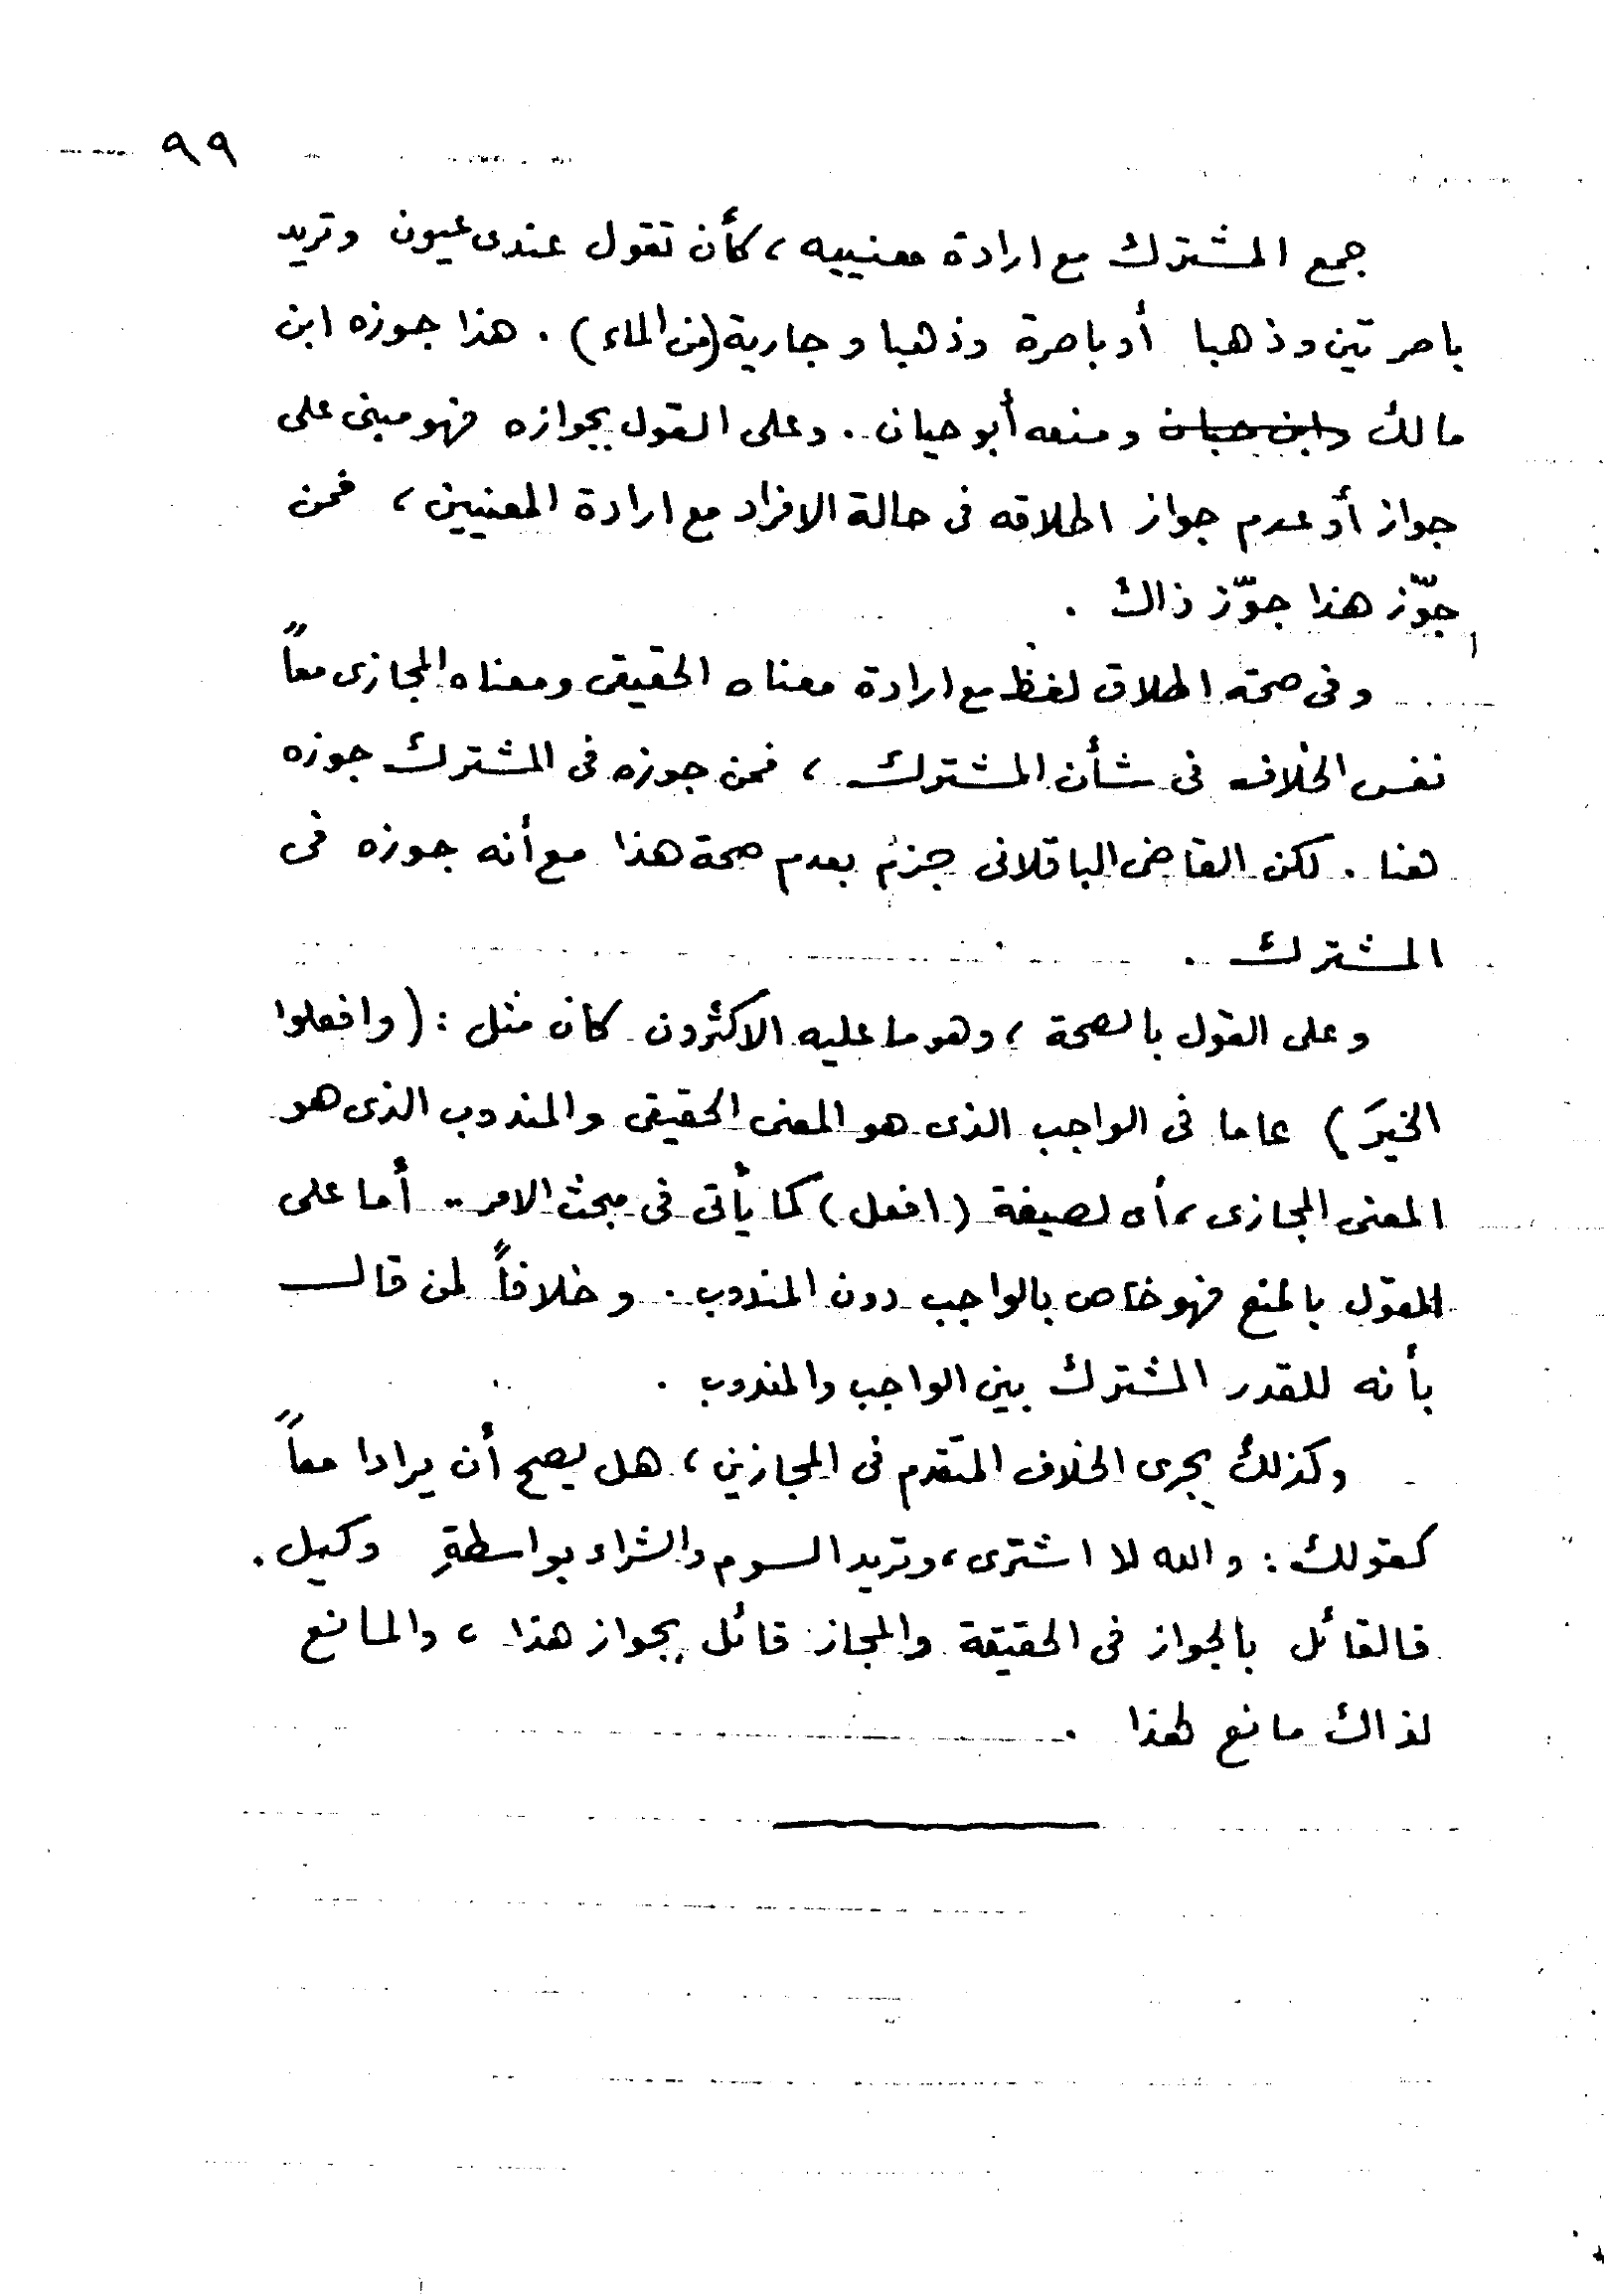 ٩٩
جمع المشترك مع ارادة معنييه ، كأن تقول عندى عيون وتريد
باصرتين وذهبا أو باصرة وذهبا وجارية (من الماء) . هذا جوزه ابن
مالك وابن حبان ومنعه أبو حيان . وعلى القول بجوازه فهو مبنى على
جواز أو عدم جواز اطلاقه فى حالة الافراد مع ارادة المعنيين ، فمن
جوّز هذا جوّز ذاك .
وفى صحة اطلاق لفظ مع ارادة معناه الحقيقى ومعناه المجازى معاً
نفس الخلاف فى شأن المشترك ، فمن جوزه فى المشترك جوزه
هنا . لكن القاضى الباقلانى جزم بعدم صحة هذا مع أنه جوزه فى
المشترك .
وعلى القول بالصحة ، وهو ما عليه الاكثرون كان مثل : (وافعلوا
الخيرَ) عاما فى الواجب الذى هو المعنى الحقيقى والمندوب الذى هو
المعنى المجازى ، أى لصيغة (افعل) كما يأتى فى مبحث الامر .. أما على
القول بالمنع فهو خاص بالواجب دون المندوب . وخلافاً لمن قال
بأنه للقدر المشترك بين الواجب والمندوب .
وكذلك يجرى الخلاف المتقدم فى المجازين ، هل يصح أن يرادا معاً
كقولك : والله لا اشترى ، وتريد السوم والشراء بواسطةِ وكيل .
فالقائل بالجواز فى الحقيقة والمجاز قائل بجواز هذا ، والمانع
لذاك مانع لهذا .